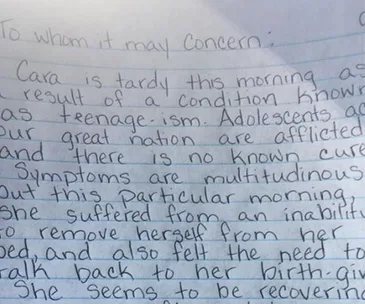 To whom it may concern:
Cara is tardy this morning as
a result of a condition known
as teenage-ism. Adolescents
our great nation are afflicted
and there is no known cure
Symptoms are multitudinous
but this particular morning,
she suffered from an inability
to remove herself from her
bed, and also felt the need to
talk back to her
She seems to be recovering